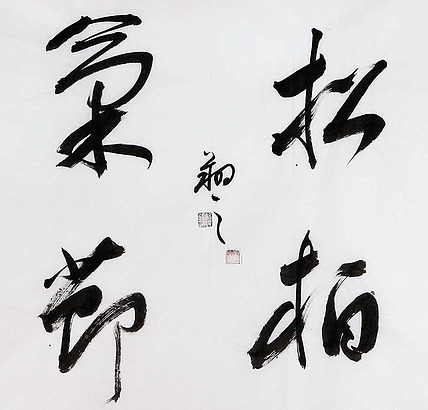 松柏
氣節